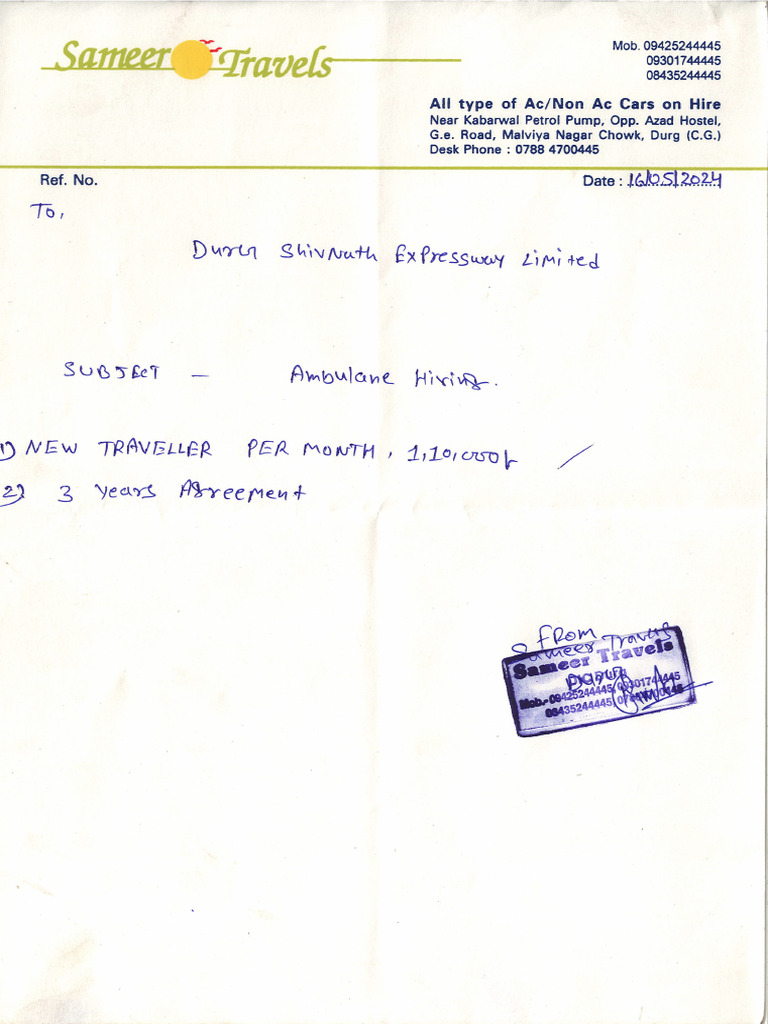 Sameer Travels
Mob. 09425244445
09301744445
08435244445
All type of Ac/Non Ac Cars on Hire
Near Kabarwal Petrol Pump, Opp. Azad Hostel,
G.e. Road, Malviya Nagar Chowk, Durg (C.G.)
Desk Phone : 0788 4700445
Ref. No.
Date : 16/05/2024
To,
Durg ShivNath Expressway Limited
SUBJECT – Ambulane Hiring.
1) NEW TRAVELLER PER MONTH, 1,10,000/-
2) 3 Years Agreement
FROM
Sameer Travels
Sameer Travels
Durg
Mob.- 09425244445, 09301744445
08435244445, 0788 4700445